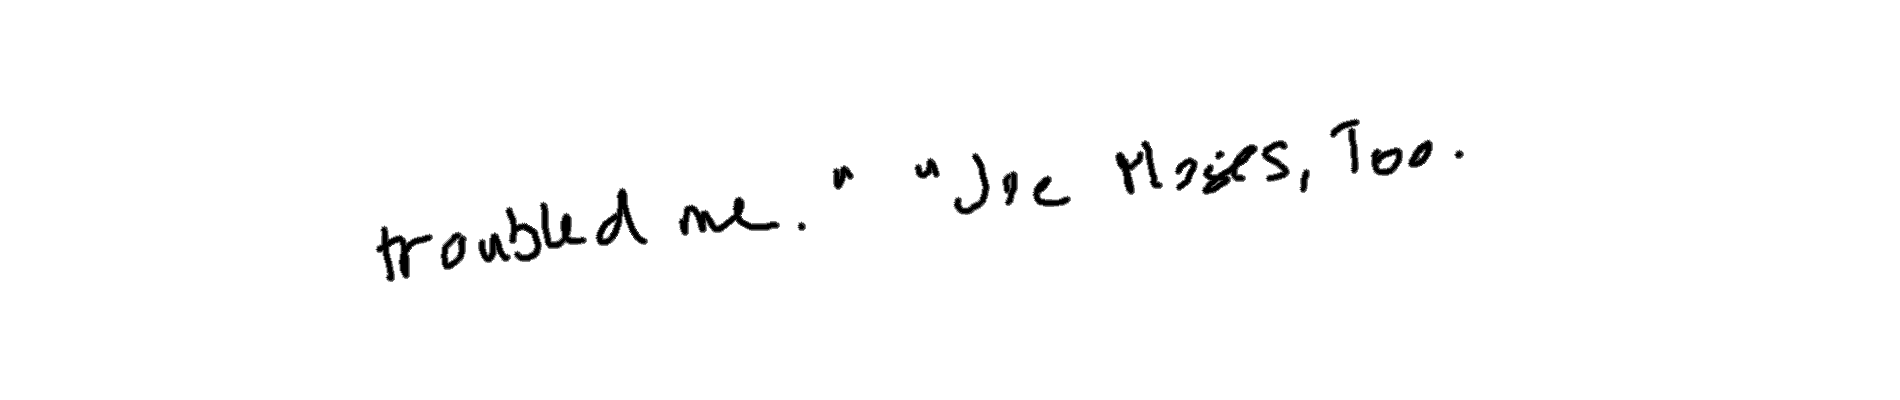 troubled me." "Joe Moses, Too.